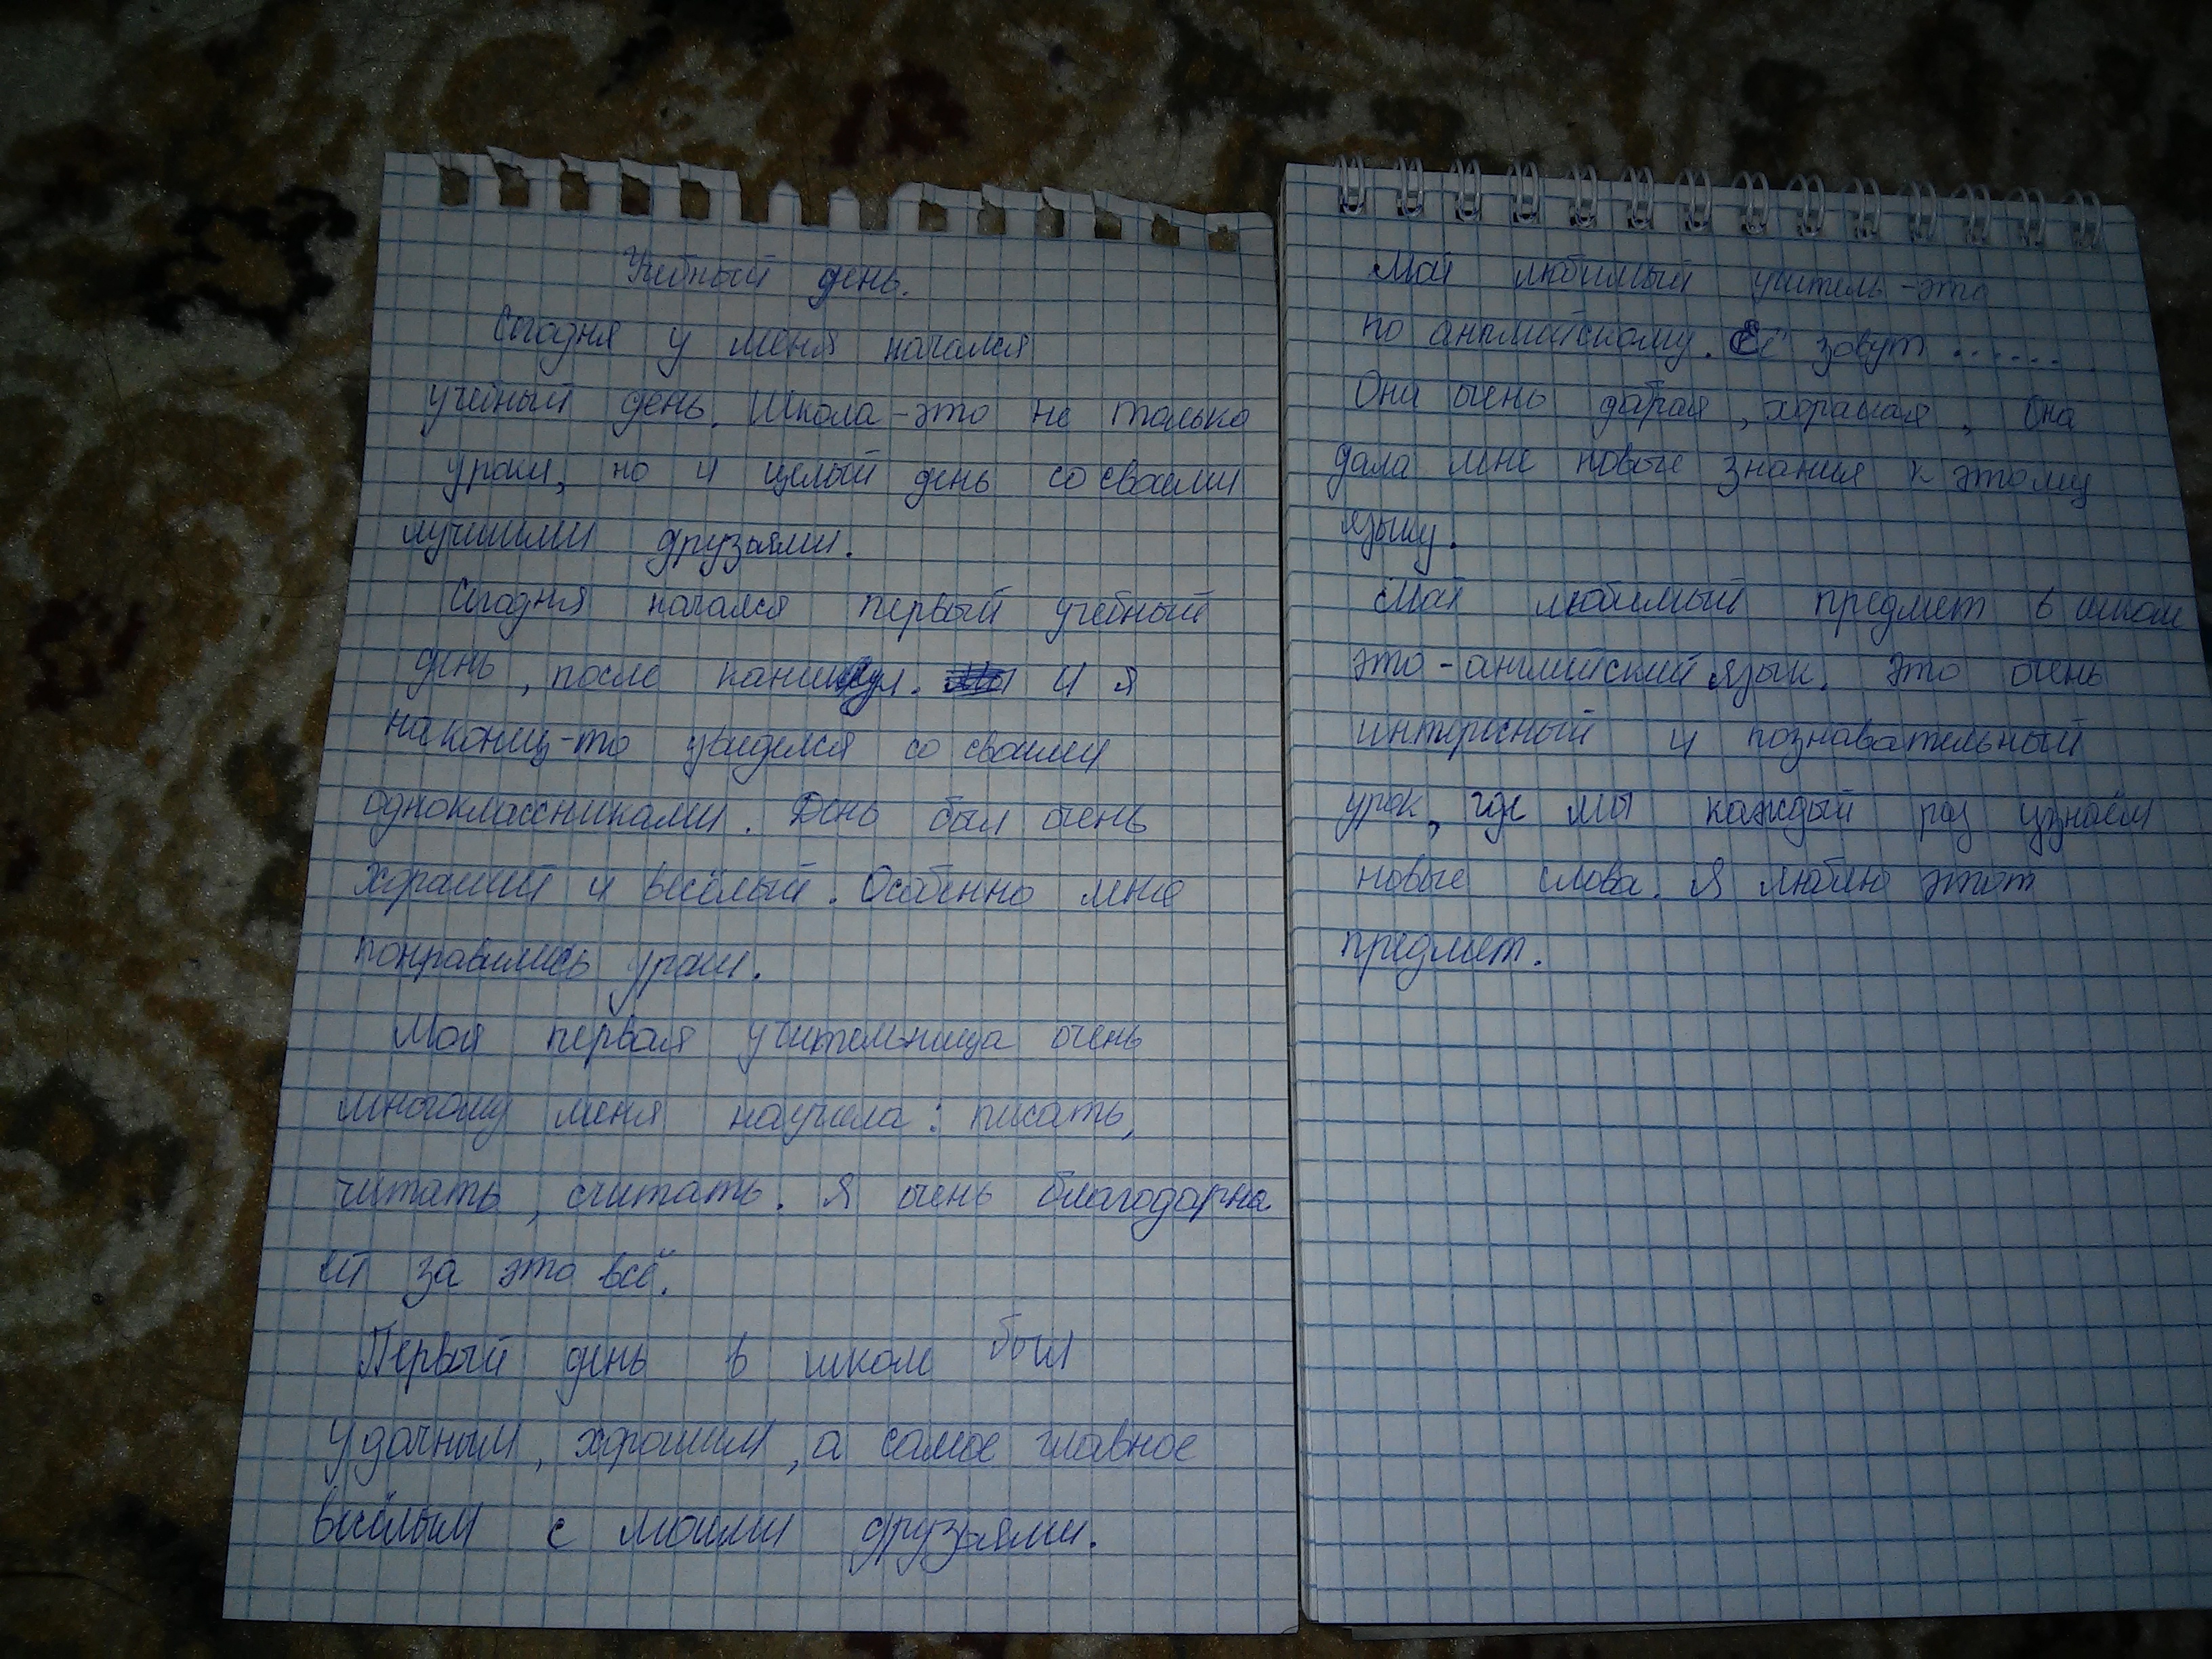 Учебный день.
Сегодня у меня начался
учебный день. Школа - это не только
уроки, но и целый день со своими
лучшими друзьями.
Сегодня начался первый учебный
день, после каникул. И я
наконец-то увиделся со своими
одноклассниками. День был очень
хороший и весёлый. Особенно мне
понравились уроки.
Моя первая учительница очень
многому меня научила: писать,
читать, считать. Я очень благодарна
ей за это всё.
Первый день в школе был
удачным, хорошим, а самое главное
весёлым с моими друзьями.
Мой любимый учитель - это
по английскому. Её зовут ......
Она очень добрая, хорошая, она
дала мне новые знания к этому
языку.
Мой любимый предмет в школе
это - английский язык. Это очень
интересный и познавательный
урок, где мы каждый раз узнаём
новые слова. Я люблю этот
предмет.